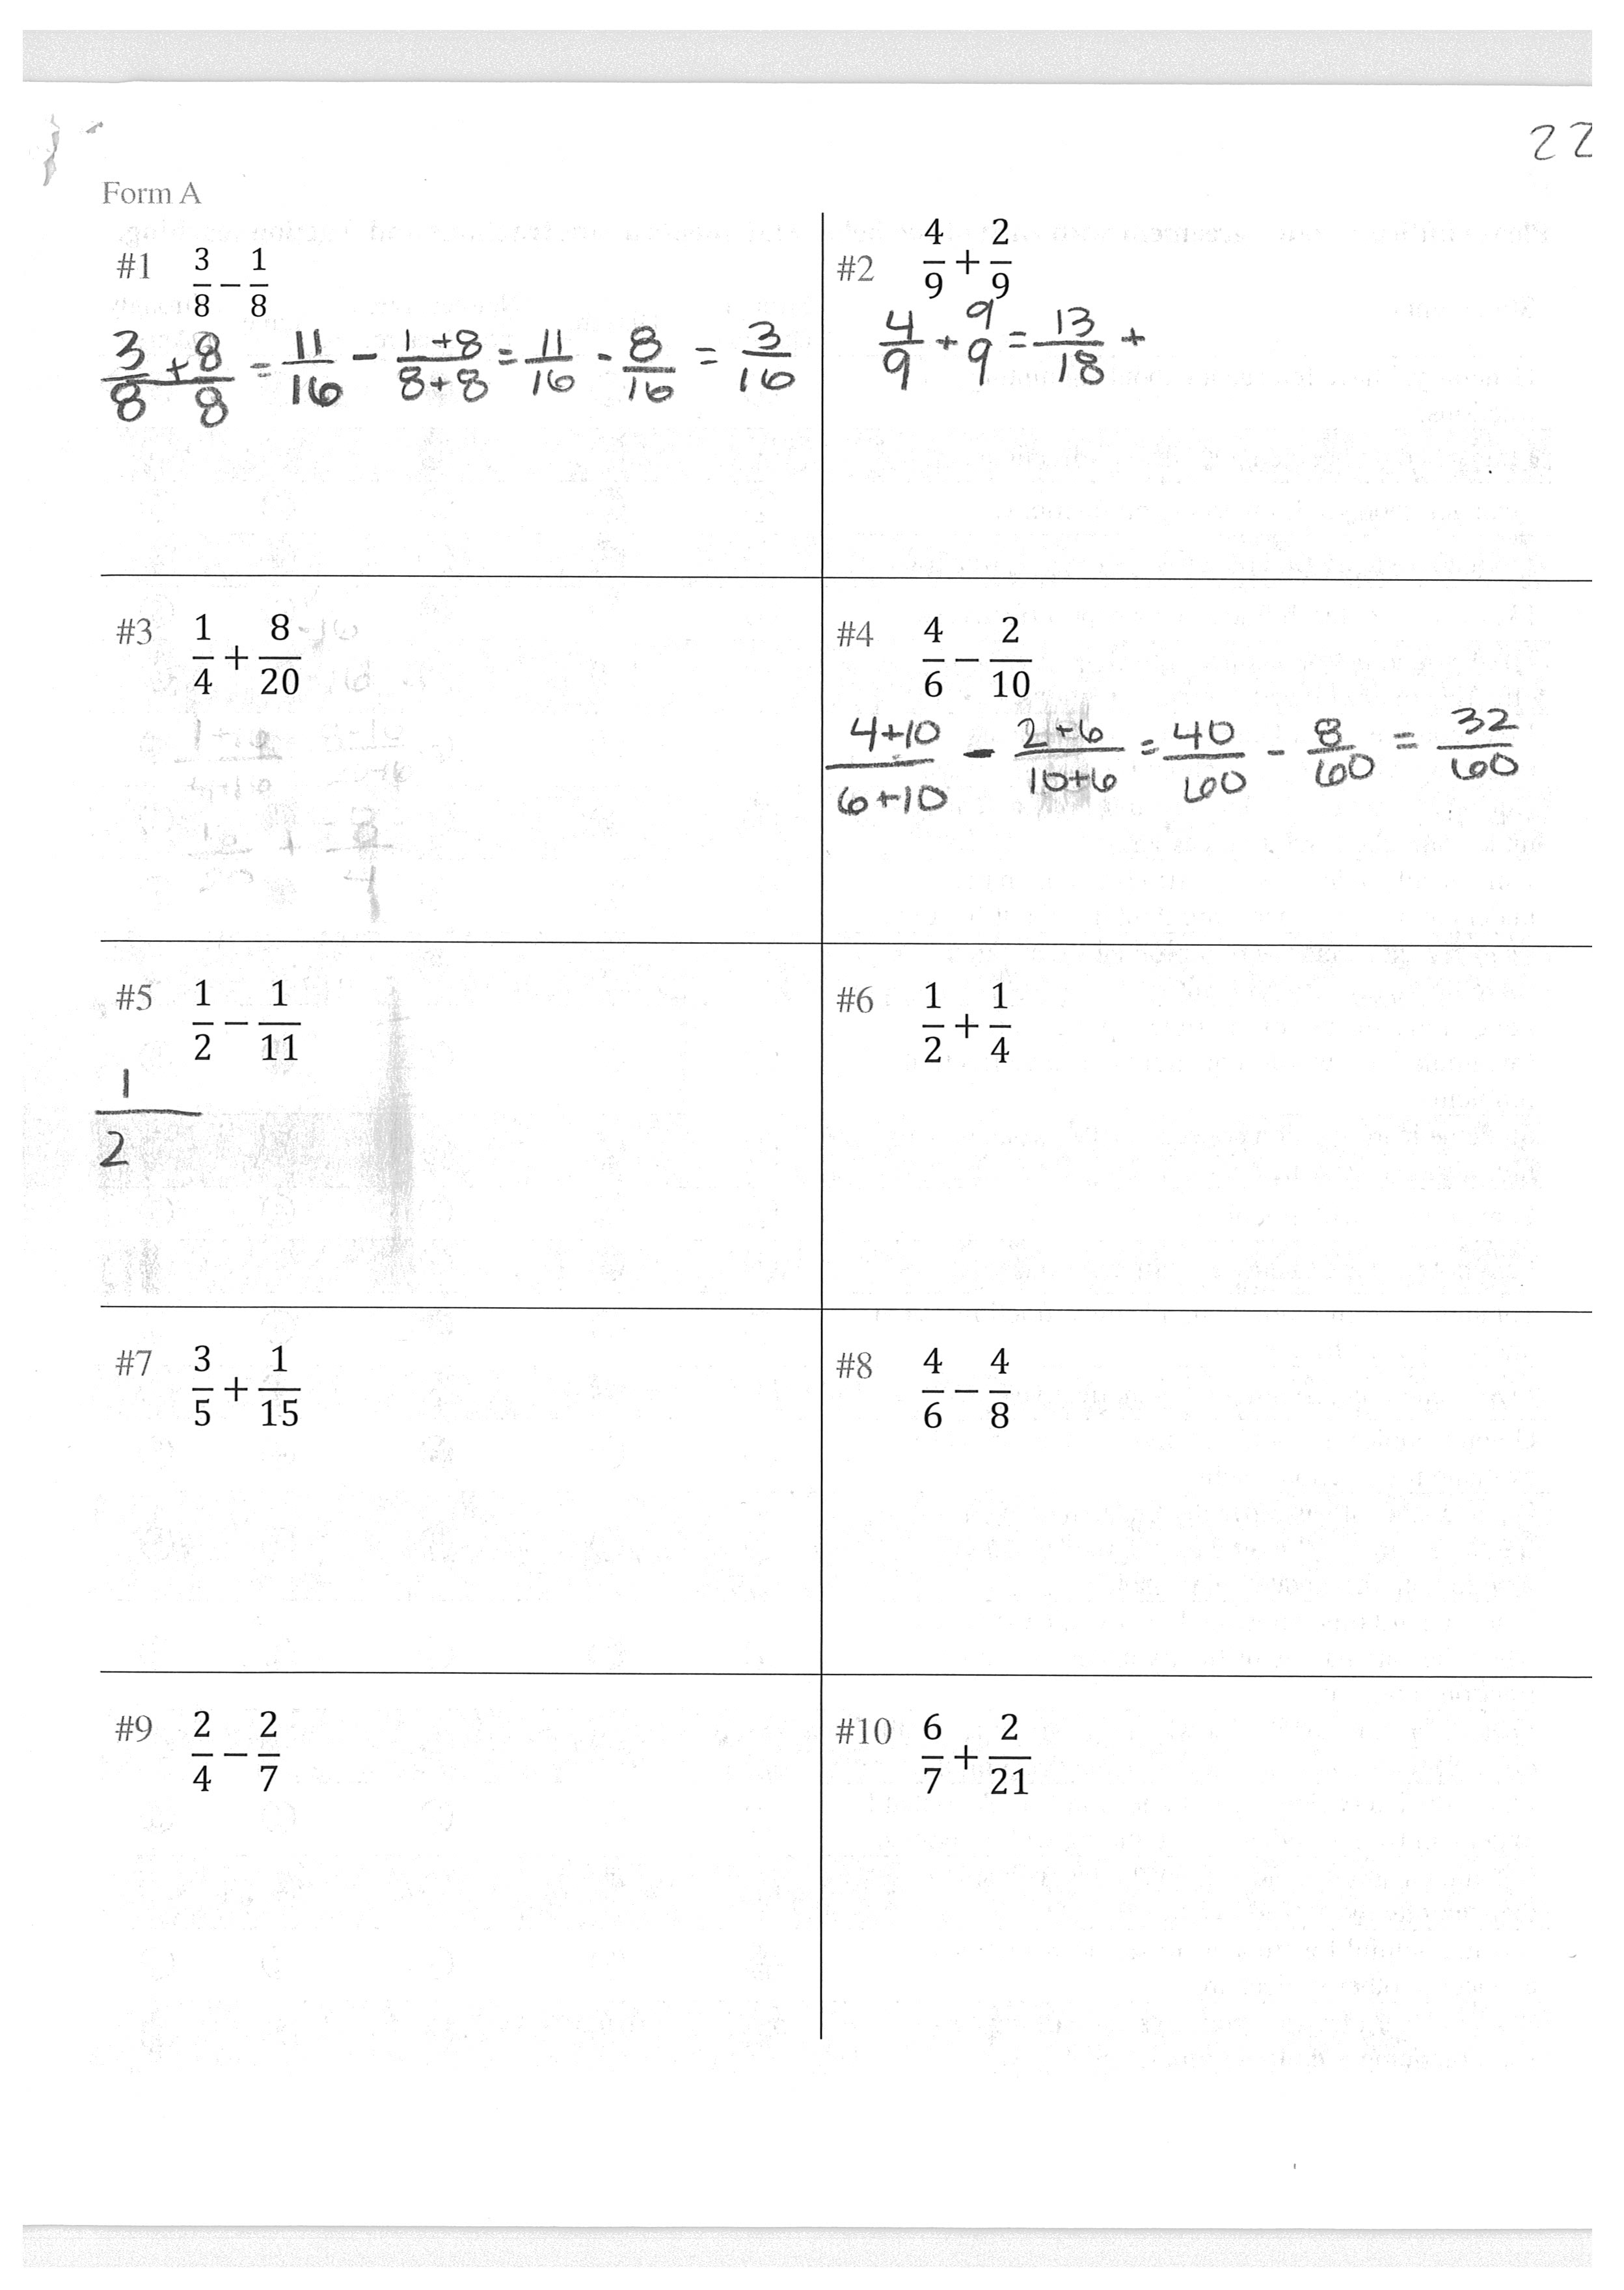 22
Form A
#1 3/8 − 1/8
3/8 + 8/8 = 11/16 - 1+8/8+8 = 11/16 - 8/16 = 3/16
#2 4/9 + 2/9
4/9 + 9/9 = 13/18 +
#3 1/4 + 8/20
#4 4/6 − 2/10
4+10/6+10 - 2+6/10+6 = 40/60 - 8/60 = 32/60
#5 1/2 − 1/11
1/2
#6 1/2 + 1/4
#7 3/5 + 1/15
#8 4/6 − 4/8
#9 2/4 − 2/7
#10 6/7 + 2/21